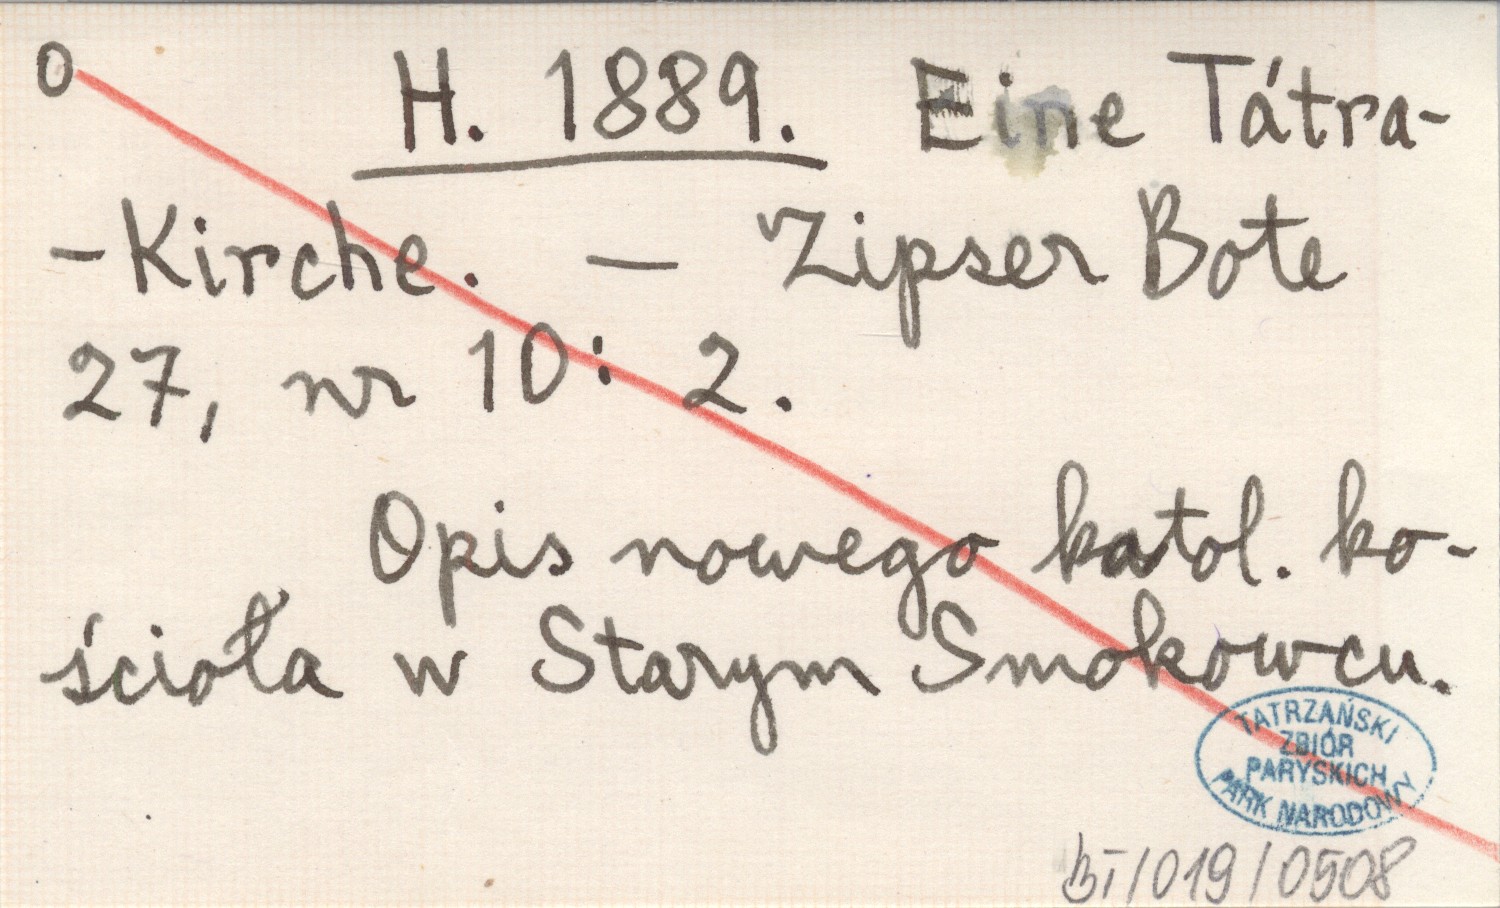 O H. 1889. Eine Tátra-
-Kirche. — Zipser Bote
27, nr 10: 2.
Opis nowego katol. ko-
ścioła w Starym Smokowcu.
TATRZAŃSKI
ZBIÓR
PARYSKICH
PARK NARODOWY
BT/019/0508